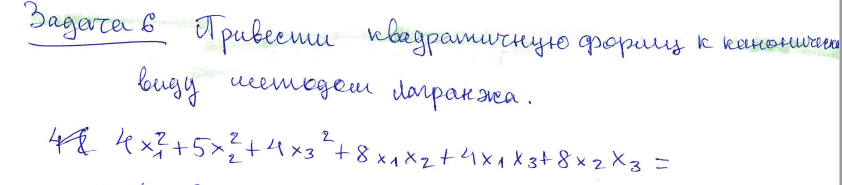 Задача 6 Привести квадратичную форму к каноническ
виду методом Лагранжа.
4x₁²+5x₂²+4x₃²+8x₁x₂+4x₁x₃+8x₂x₃=